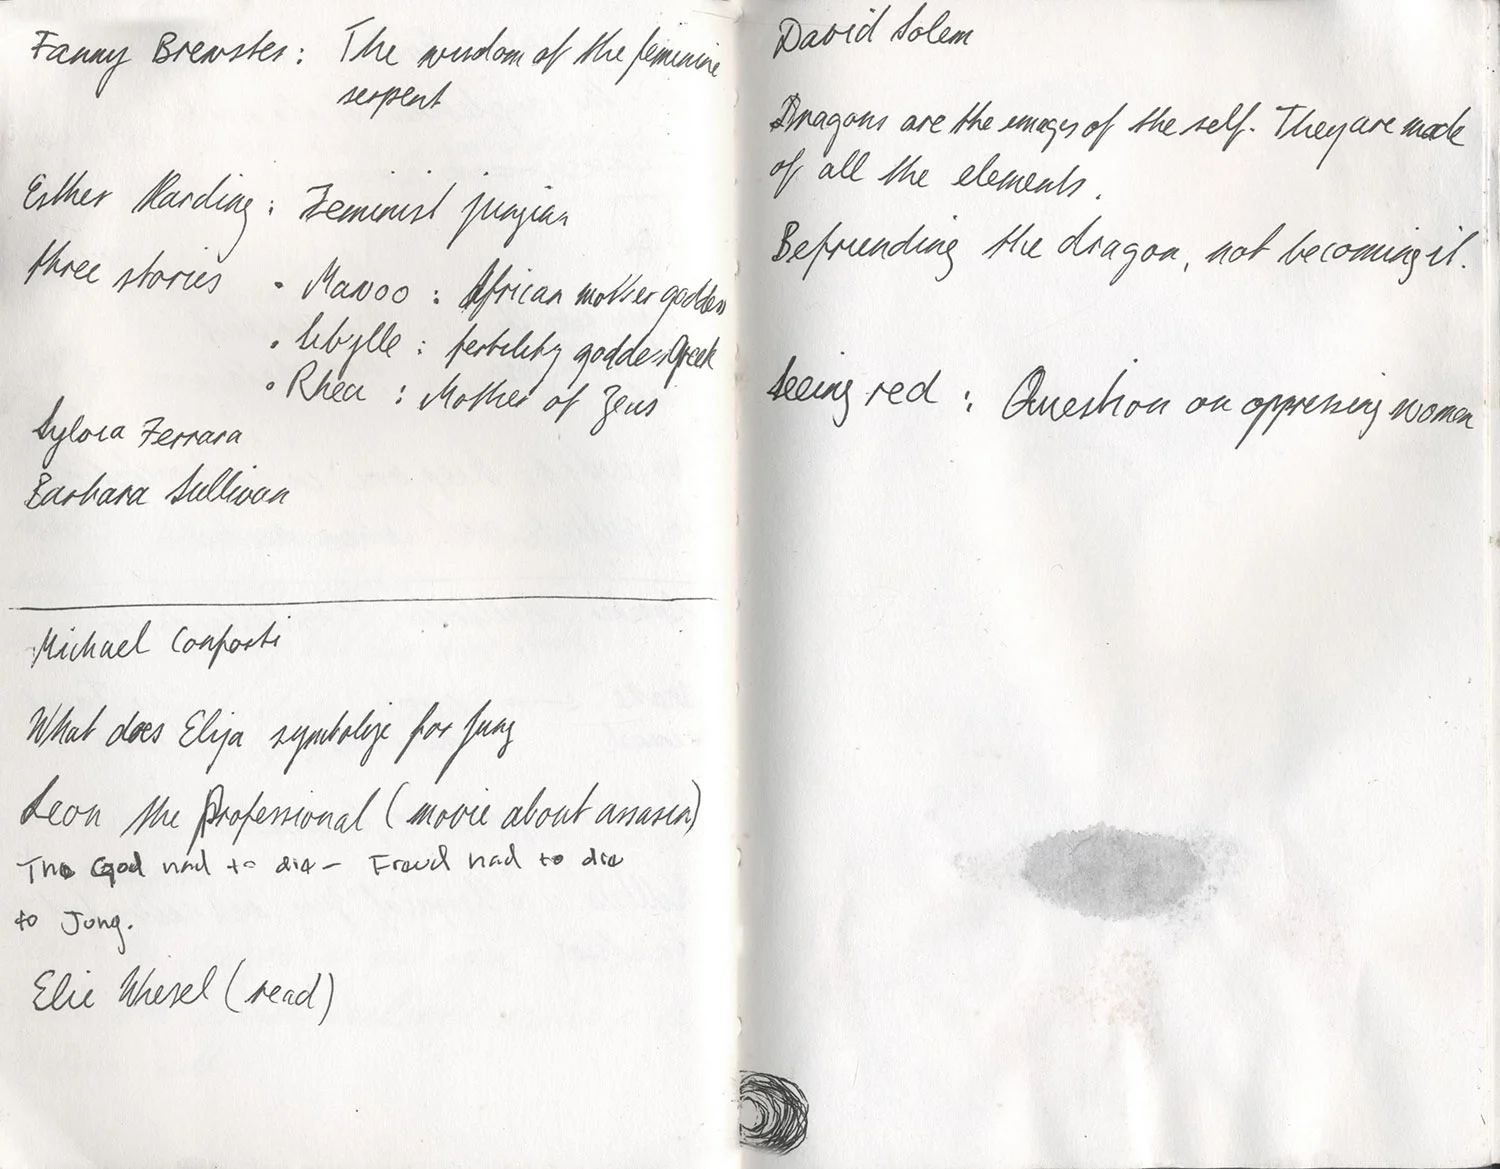 Fanny Brewster: The wisdom of the feminine
serpent
Esther Harding: Feminist jungian
three stories
• Mawoo: African mother goddess
• Cibylle: fertility goddess Greek
• Rhea: Mother of Zeus
Sylvia Ferrara
Barbara Sullivan
Michael Conforti
What does Elija symbolize for Jung
Leon the Professional (movie about assasin)
The God had to die - Freud had to die
to Jung.
Elie Whiesel (read)
David Solem
Dragons are the images of the self. They are made
of all the elements.
Befriending the dragon, not becoming it.
Seeing red: Question on oppressing women